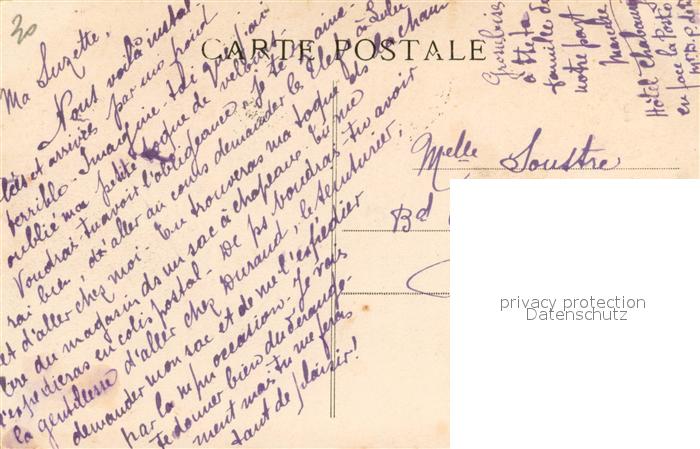 30
CARTE POSTALE
Ma Suzette,
Nous voilà instal-
lées et arrivées par un froid
terrible. Imagine-toi que j'ai
oublié ma petite toque de velours
Voudrais-tu avoir l'obligeance, je t'aime-
rai bien, d'aller au cours demander le
et d'aller chez moi. Tu trouveras ma toque
du magasin ds un sac à chapeaux. Tu me
l'expédieras en colis postal. De ps voudras-tu avoir
la gentillesse d'aller chez Durand, le teinturier,
demander mon sac et de me l'expédier
par la mm occasion. Je vais
te donner bien du dérange-
ment mais tu me feras
tant de plaisir!
à ta
famille de
notre part
Hôtel
en face la Poste
Melle Soustre
Bd
privacy protection
Datenschutz